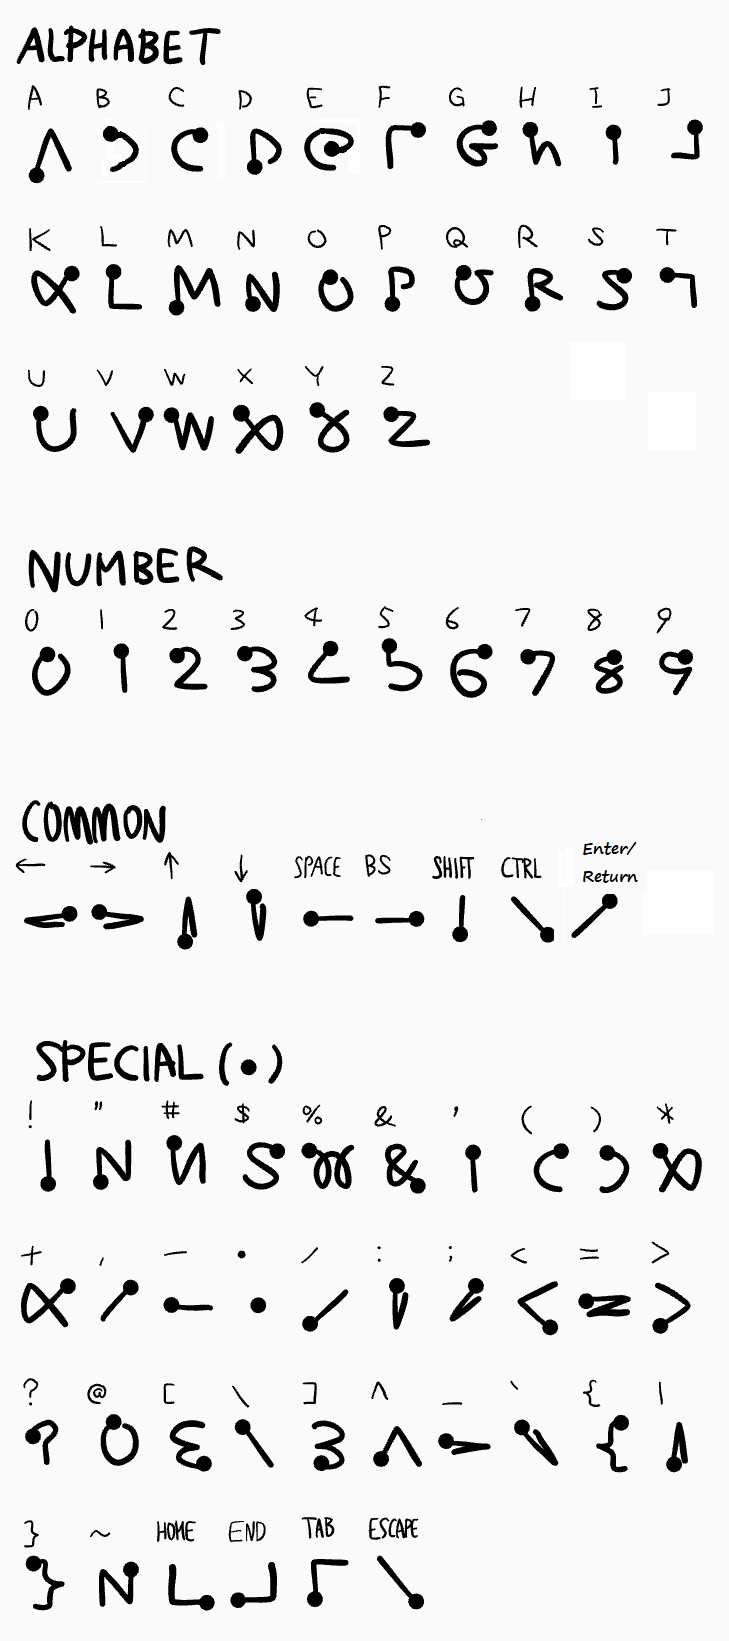 ALPHABET
A B C D E F G H I J
K L M N O P Q R S T
U V W X Y Z
NUMBER
0 1 2 3 4 5 6 7 8 9
COMMON
← → ↑ ↓ SPACE BS SHIFT CTRL Enter/
Return
SPECIAL (•)
! " # $ % & ' ( ) *
+ , - • / : ; < = >
? @ [ \ ] ^ _ ` { |
} ~ HOME END TAB ESCAPE